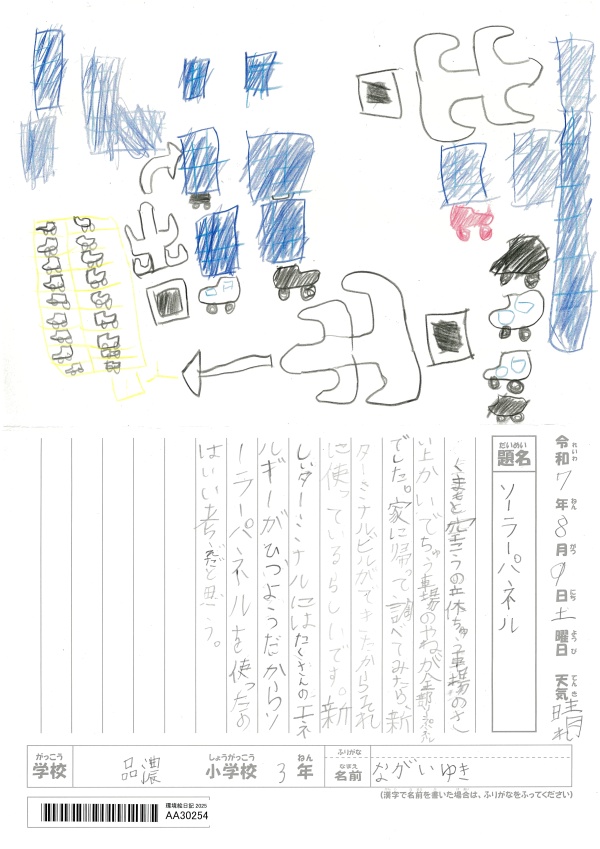 令和7年8月9日土曜日 天気晴れ
れいわ ねん がつ にち ようび てんき
だいめい
題名 ソーラーパネル
くまもと空こうの立体ちゅう車場のさ
い上かいでちゅう車場のやねが全部ソーラーパネル
でした。家に帰って調べてみたら、新
ターミナルビルができたからそれ
に使っているらしいです。新
しいターミナルにはたくさんのエネ
ルギーがひつようだからソ
ーラーパネルを使ったの
はいい考えだと思う。
がっこう
学校 品濃
しょうがっこう ねん
小学校 3年
ふりがな
なまえ
名前 ながいゆき
(漢字で名前を書いた場合は、ふりがなをふってください)
環境絵日記 2025
AA30254